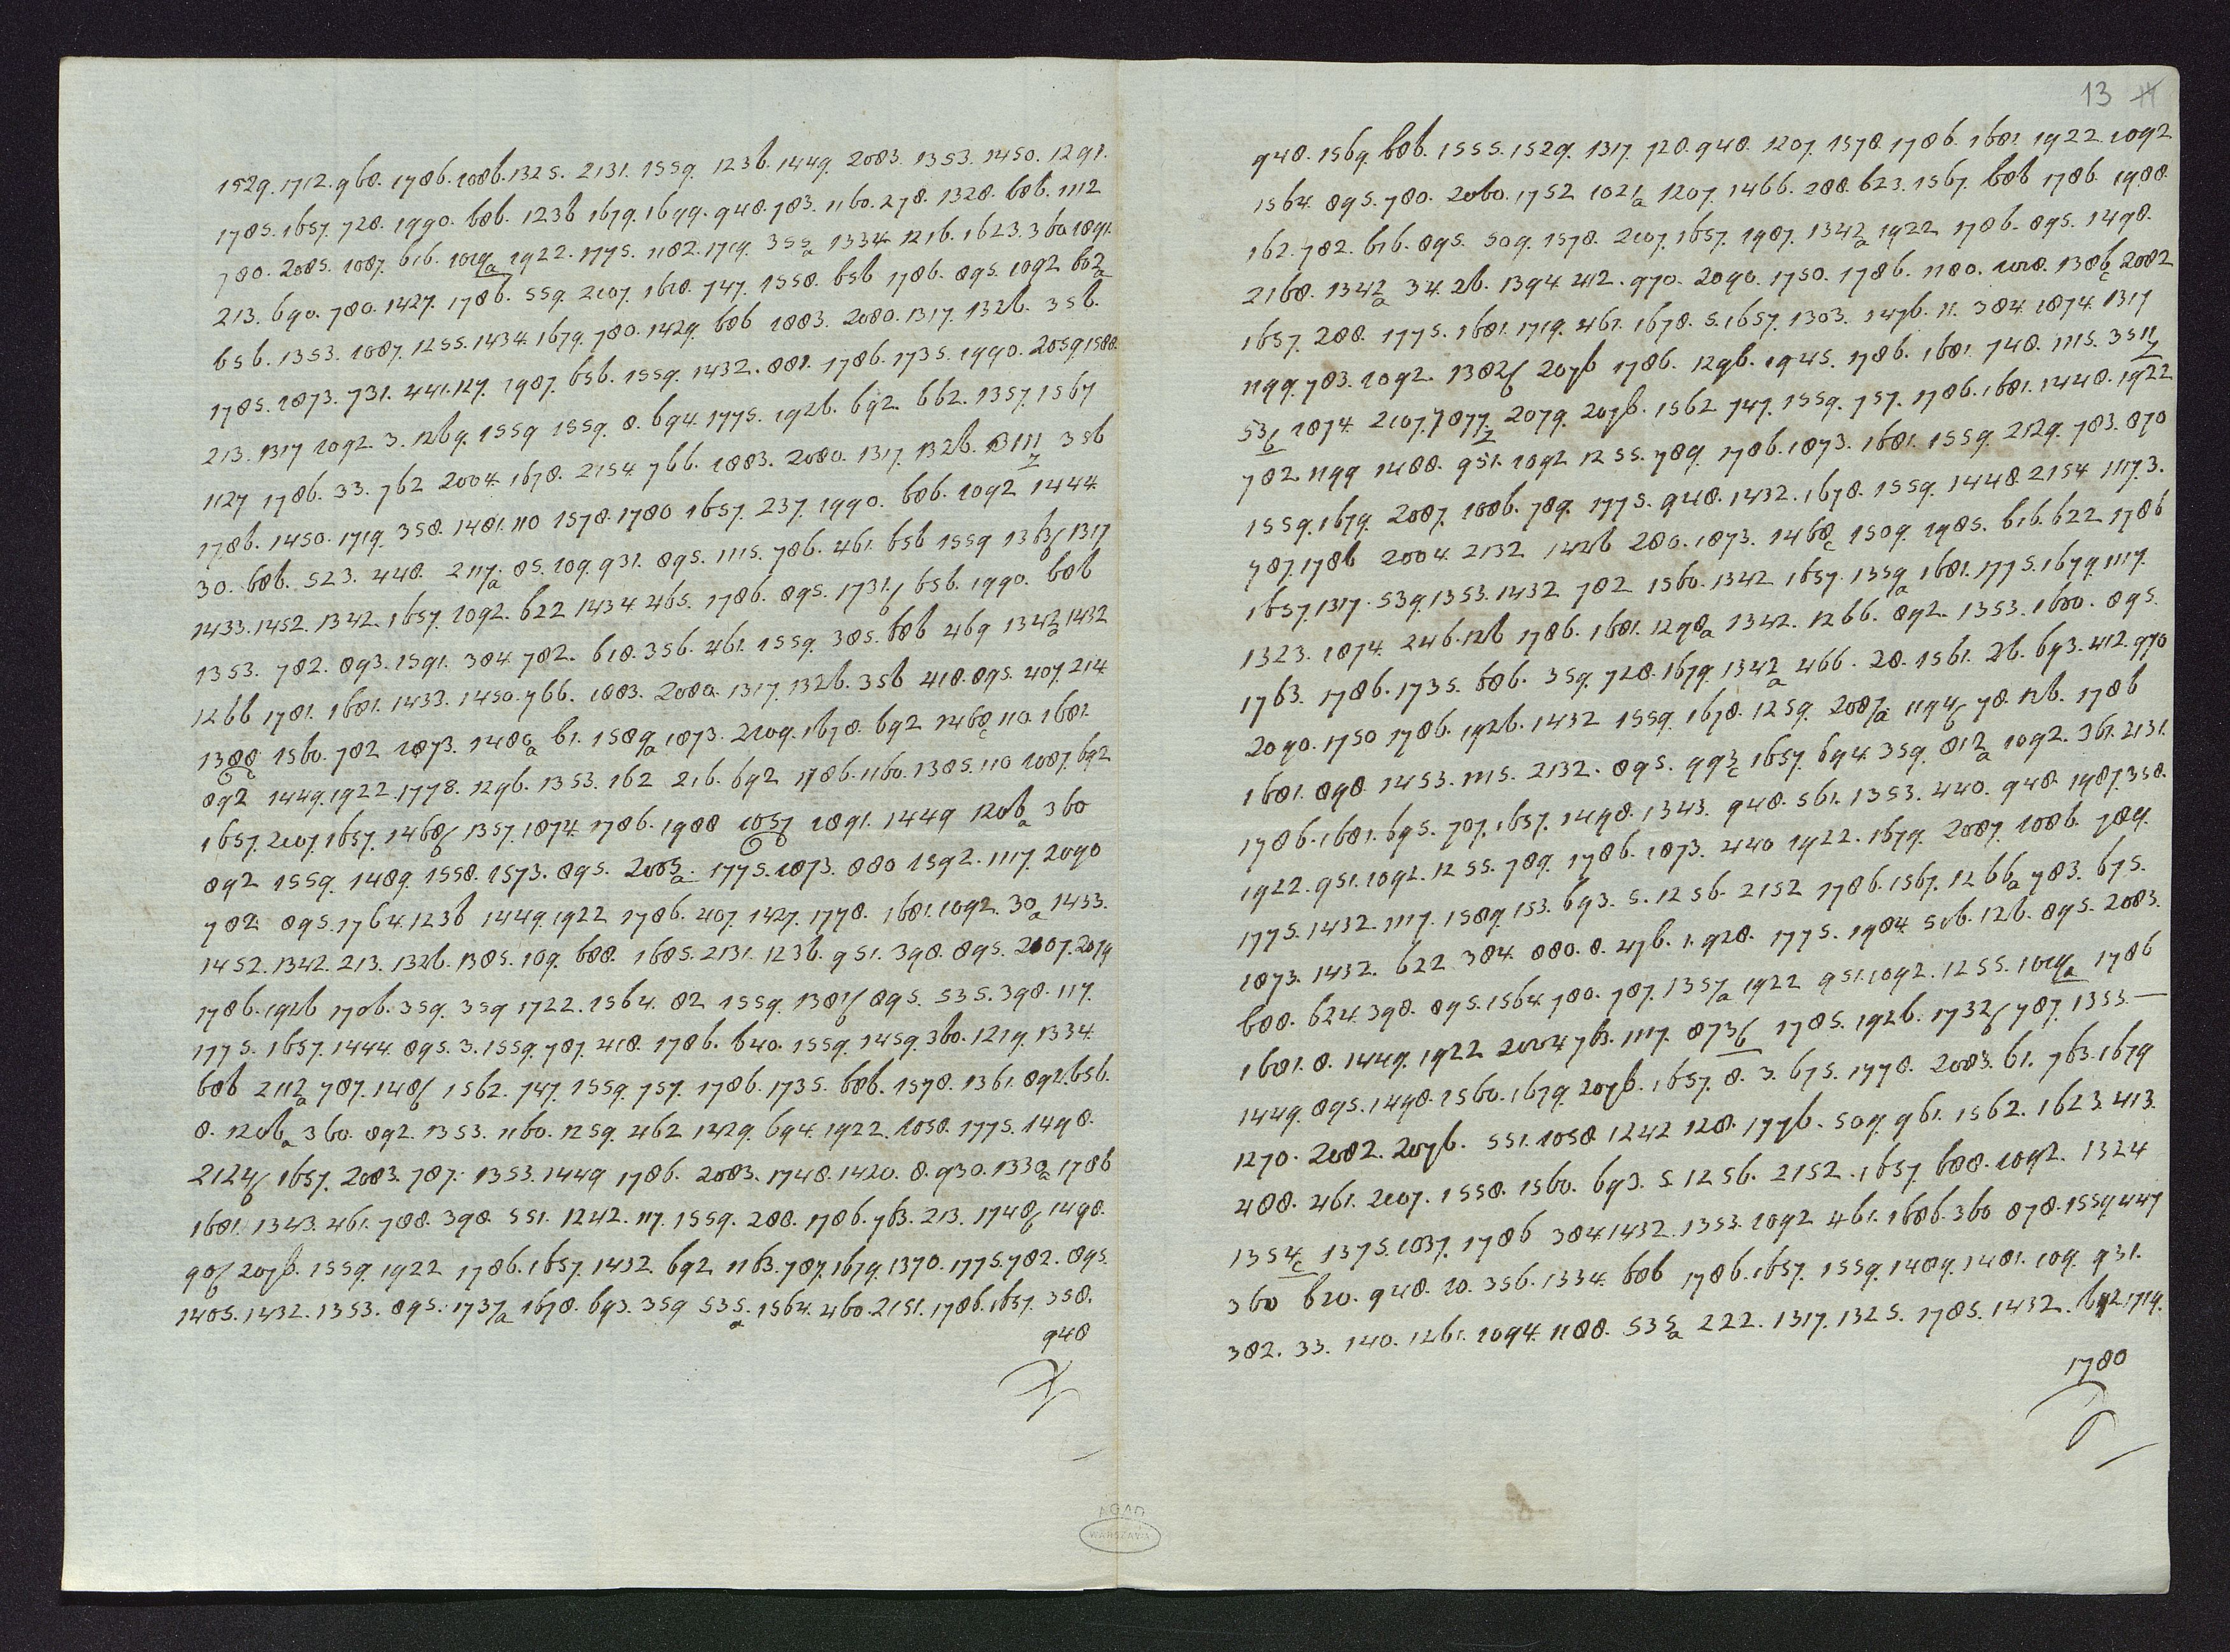 1529. 1712. 968. 1786. 1086. 1325. 2131. 1559. 1236. 1449. 2083. 1353. 1450. 1291.
1785. 1657. 728. 1990. 686. 1236 1679. 1699. 948. 783. 1160. 278. 1328. 686. 1112
780. 2085. 1087. 616. 1019a 1922. 1775. 1182. 1719. 355a 1334 1216. 1623. 360 1891.
213. 690. 780. 1427. 1786. 559. 2107. 1618. 747. 1558. 656 1786. 895. 1092 602a
656. 1353. 1087. 1255. 1434. 1679. 780. 1429. 686 1883. 2080. 1317. 1326. 356.
1785. 1873. 731. 441. 127. 1987. 656. 1559. 1432. 881. 1786. 1735. 1990. 2059 1588.
213. 1317 1092 3. 1269. 1559 1559. 8. 694. 1775. 1926. 692. 662. 1357. 1567
1127 1786. 33. 762 2004. 1678. 2154 766. 1883. 2080. 1317. 1326. 356
1786. 1450. 1719. 358. 1481. 110 1578. 1780 1657. 237. 1990. 686. 1092 1444.
30. 686. 523. 448. 2117a. 85. 109. 931. 895. 1115. 786. 461. 656 1559 1363f 1317
1433. 1452. 1342. 1657. 1092. 622 1434 465. 1786. 895. 1731f 656. 1990. 686
1353. 782. 893. 1591. 384. 782. 618. 356. 461. 1559. 385. 686 469 1342a 1432
1266 1781. 1681. 1433. 1450. 766. 1883. 2080. 1317. 1326. 356 418. 895. 407. 214.
1388c 1560. 782 1873. 1480a 61. 1589a 1873. 2109. 1678. 692 1468c 110. 1681.
892 1449. 1922. 1778. 1296. 1353. 162 216. 692 1786. 1160. 1385. 110 1087. 692
1657. 2107. 1657. 1468f 1357. 1874. 1786. 1988 1057 1891. 1449 1206a 360
892 1559. 1489. 1558. 1573. 895. 2085a. 1775. 1873. 880 1592. 1117. 2090
782 895. 1764. 1236 1449. 1922 1786. 407. 1427. 1778. 1681. 1092. 30a 1433.
1452. 1342. 213. 1326. 1385. 109. 688. 1685. 2131. 1236. 951. 398. 895. 2107. 2019
1786. 1926 1706. 359. 359 1722. 1564. 82 1559. 1381f 895. 535. 398. 117.
1775. 1657. 1444. 895. 3. 1559. 787. 418. 1786. 640. 1559. 1459. 360. 1219. 1334.
686 2112a 787. 148f 1562. 747. 1559. 757. 1786. 1735. 686. 1578. 1361. 892. 656.
8. 1206a 360. 892. 1353. 1160. 1259. 462 1429. 694. 1922. 1058. 1775. 1498.
2124f 1657. 2083. 787. 1353. 1449 1786. 2083. 1748. 1420. 8. 930. 1330a 1786
1681. 1343. 461. 788. 398. 551. 1242. 117. 1559. 288. 1786. 763. 213. 1748f 1498.
90f 2076. 1559. 1922 1786. 1657. 1432. 692 1163. 787. 1679. 1370. 1775. 782. 895.
1405. 1432. 1353. 895. 1737a 1678. 693. 359 535a. 1564. 460. 2151. 1786. 1657. 358.
948
13
948. 1569. 686. 1555. 1529. 1317. 728. 948. 1207. 1578. 1786. 1681. 1922. 1092
1564. 895. 780. 2060. 1752 1021a 1207. 1466. 288. 623. 1567. 686 1786. 1988.
162. 782. 616. 895. 509. 1578. 2107. 1657. 1987. 1342a 1922 1786. 895. 1498.
2168. 1342a 34. 26. 1394 412. 970. 2090. 1750. 1786. 1180. 1018. 1386c 2082
1657. 288. 1775. 1681. 1719. 461. 1678. 5. 1657. 1303. 1476. 11. 384. 1874. 1317
1199. 783. 1092. 1382f 2076 1786. 1296. 1945. 1786. 1681. 748. 1115. 351z
53f 1874. 2107. 1877z. 2079. 2076. 1562 747. 1559. 757. 1786. 1681. 1448. 1922
782. 1199 1488. 951. 1092 1255. 789. 1786. 1873. 1681. 1559. 2129. 783. 870
1559. 1679. 2087. 1086. 789. 1775. 948. 1432. 1678. 1559. 1448 2154 1117. 3.
787. 1786 2004. 2132 1426 280. 1873. 1468c 1509. 1985. 616. 622 1786
1657. 1317. 539. 1353. 1432 782 1560. 1342 1657. 1359a 1681. 1775. 1679. 1117.
1323. 1874. 246. 126 1786. 1681. 1298a 1342. 1266. 892. 1353. 1680. 895.
1763. 1786. 1735. 686. 359. 728. 1679. 1342a 466. 28. 1561. 26. 693. 412. 970
2090. 1750 1786. 1926. 1432 1559. 1678. 1259. 2087a 1194f 78. 126. 1786
1681. 898. 1453. 1115. 2132. 895. 993c 1657. 694. 359. 812a 1092. 361. 2131.
1786. 1681. 695. 707. 1657. 1498. 1343. 948. 561. 1353. 440. 948. 1987. 358.
1922. 951. 1092. 1255. 789. 1786. 1873. 440 1922. 1679. 2087. 1086. 789.
1775. 1432. 1117. 1589. 153. 693. 5. 1256. 2152 1786. 1567. 1266a 783. 675.
1873. 1432. 622. 384. 880. 8. 476. 1. 928. 1775. 1984. 506. 126. 895. 2083.
688. 624. 398. 895. 1564. 780. 787. 1357a 1922 951. 1092. 1255. 1019a 1786
1681. 8. 1449. 1922 2004 763. 1117. 873f 1785. 1926. 1732f 787. 1353.—
1449. 895. 1498. 1560. 1679. 2076. 1657. 8. 3. 675. 1778. 2083. 61. 763. 1679
1270. 2082. 2076. 551. 1058 1242 128. 1776. 509 961. 1562. 1623. 413.
488. 461. 2107. 1558. 1560. 693. 5. 1256. 2152. 1657. 688. 1092. 1324
1354c 1375. 1037. 1786 384 1432. 1353. 1092 461. 1686. 360 878. 1559. 447
360 620. 948. 20. 356. 1334. 686 1786. 1657. 1559. 1489. 1481. 109. 931.
382. 33. 140. 1261. 1094. 1188. 535a 222. 1317. 1325. 1785. 1432. 692 1719.
1780
AGAD
WARSZAWA